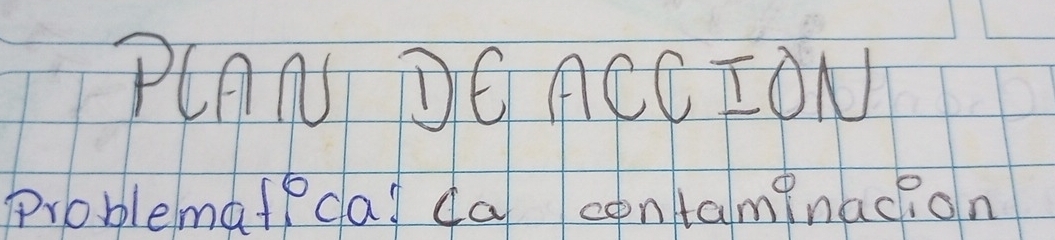 PLAN DE ACCION
Problematica: La contaminacion